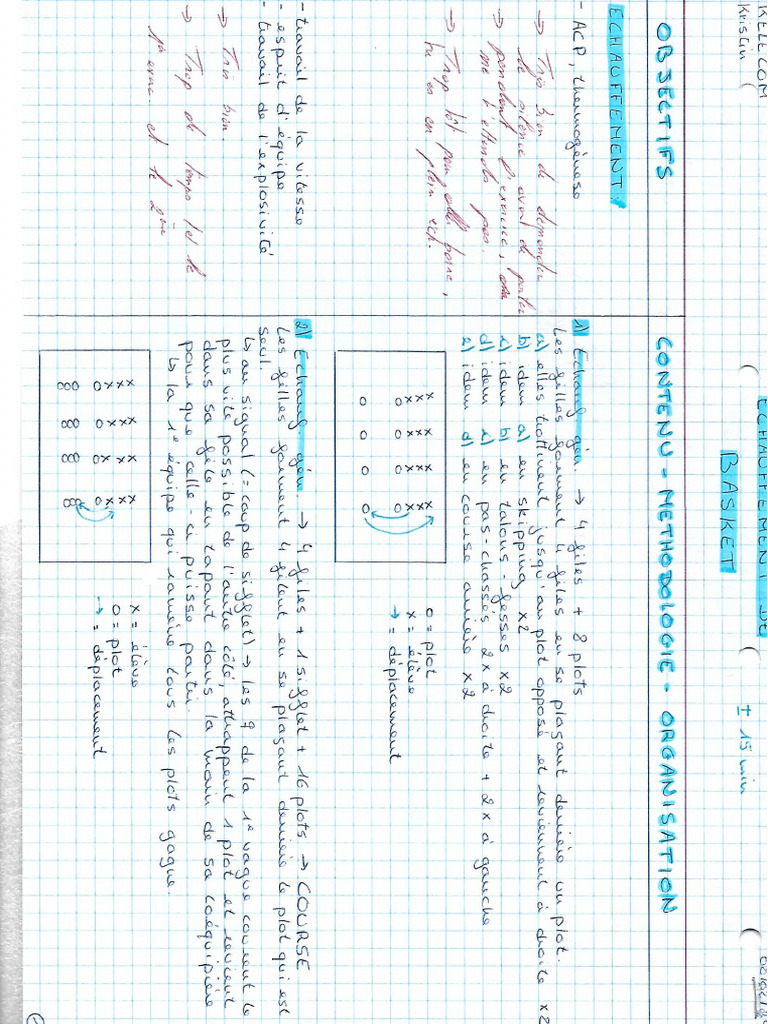 KELECOM
Kristin
ECHAUFFEMENT DE
BASKET
± 15 min
OBJECTIFS
CONTENU - METHODOLOGIE - ORGANISATION
ECHAUFFEMENT.
- ACP, thermogénèse
→ Très bien de demander
le silence avant de parler
pendant l'exercice,
→ Trop tôt pour
tu es en plein éch.
1) Echauf. gén. → 4 files + 8 plots
Les filles forment 4 files en se plaçant derrière un plot.
a) elles trottinent jusqu'au plot opposé et reviennent à droite x2
b) idem a) en skipping x2
c) idem b) en talons-fesses x2
d) idem c) en pas-chassés 2x à droite + 2x à gauche
e) idem d) en course arrière x2
o = plot
x = élève
→ = déplacement
- travail de la vitesse
- esprit d'équipe
- travail de l'explosivité
→ Très bien.
→ Trop de temps entre le
1er exerc. et le 2ème
2) Echauf. gén. → 4 files + 1 sifflet + 16 plots → COURSE
Les filles forment 4 filent en se plaçant derrière le plot qui est
seul.
↳ au signal (= coup de sifflet) → les 4 de la 1e vague courent le
plus vite possible de l'autre côté, attrappent 1 plot et revient
dans sa file en tapant dans la main de sa coéquipière
pour que celle-ci puisse partir.
↳ la 1e équipe qui ramène tous les plots gagne.
x = élève
o = plot
→ = déplacement